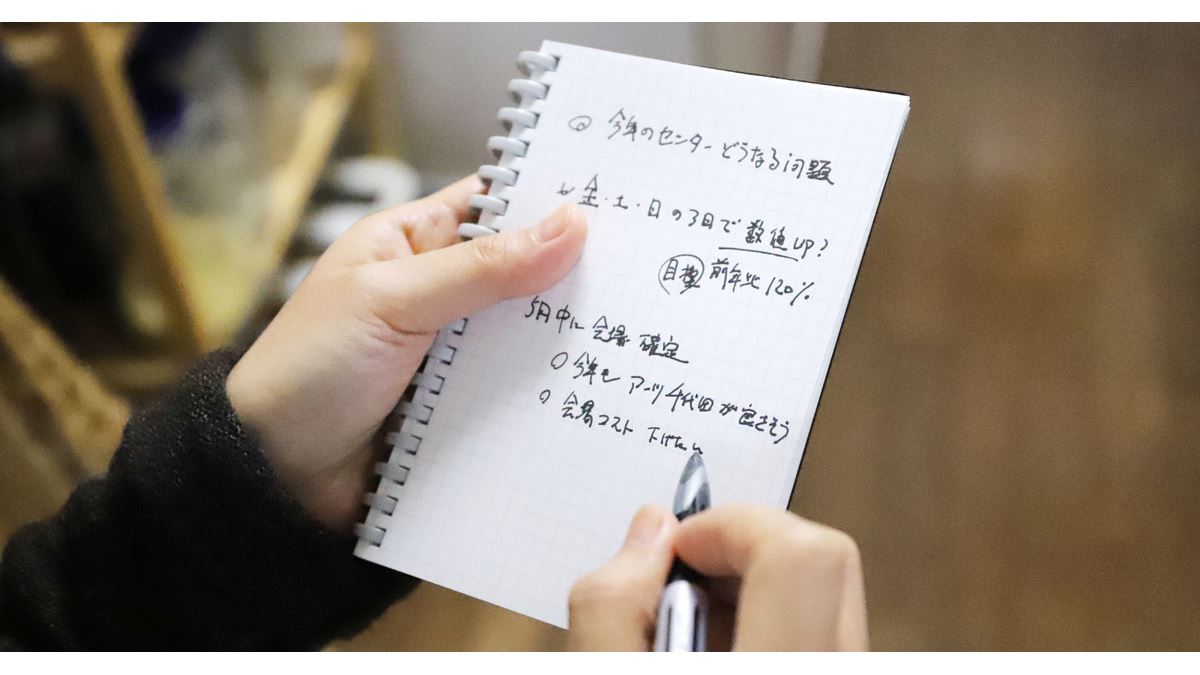 ◎ 今年のセンターどうなる問題
↳ 金・土・日の3日で数値UP?
目標 前年比120%
5月中に会場確定
○ 今年も アーツ千代田が空きそう
○ 会場コスト 下げたい